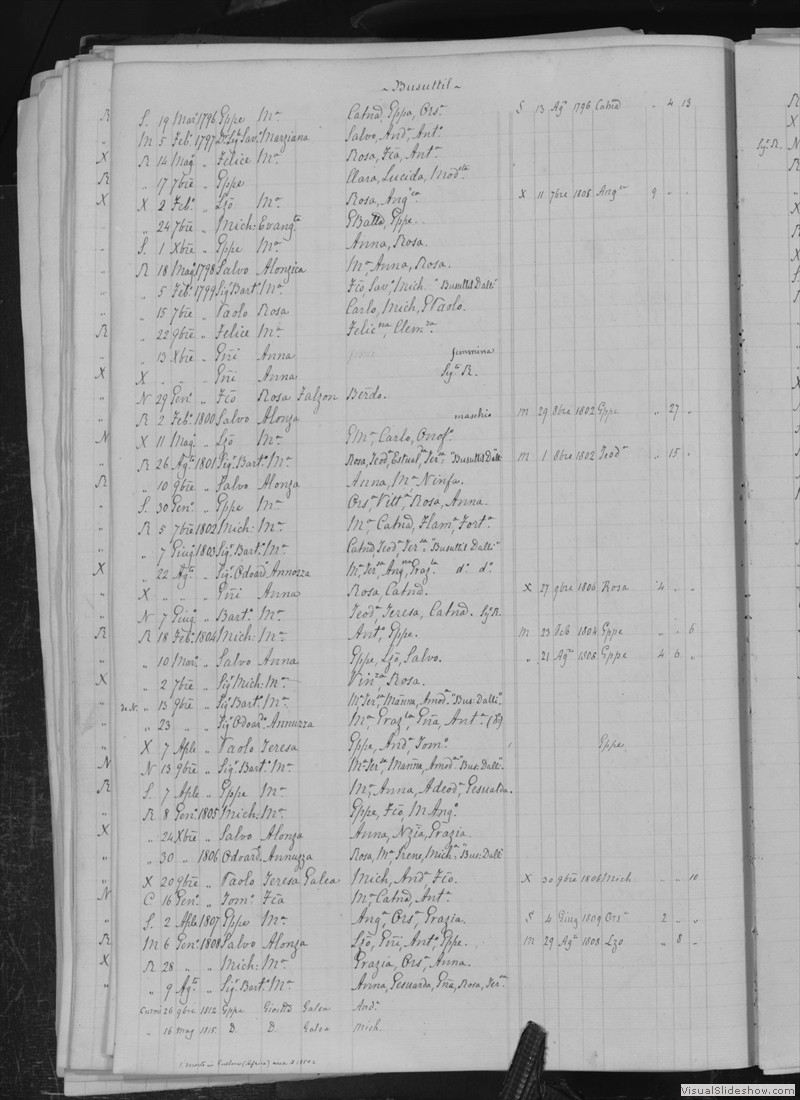 ~ Busuttil ~
R S. 19 Mar. 1796 Gppe Ma. Catnd, Gppa, Orsa. S 13 Agto 1796 Catnd " 4 13
" M 5 Feb. 1797 Dr Sigr Savo Marziana Salvo, Anda, Anta.
X R 14 Mag. " Felice Ma. Rosa, Fca, Anta
R " 17 7bre " Gppe Clara, Lucida, Modsta
X X 2 Feb. " Lzo Ma. Rosa, Angca X 11 7bre 1805 Angca 9 " "
" " 24 7bre " Mich: Evangta GBatta, Gppe.
" S. 1 Xbre " Gppe Ma. Anna, Rosa.
" R 18 Mag 1798 Salvo Alonzica Ma. Anna, Rosa.
" " 5 Feb. 1799 Sigr Barto Ma. Fco, Savo, Mich. "Busuttil Dalli"
" " 15 7bre " Paolo Rosa Carlo, Mich, GPaolo.
R " 22 9bre " Felice Ma. Felicna, Clemza
" " 13 Xbre " Gni Anna femmina
X X " " " Gni Anna Sga R.
" N 29 Gen. " Fco Rosa Falzon Berdo.
" R 2 Feb. 1800 Salvo Alonza maschio M 29 8bre 1802 Gppe " 27 "
N X 11 Mag. " Lzo Ma. GMa, Carlo, Onofo.
" R 26 Agto 1801 Sigr Barto Ma. Rosa, Teoda, Tersa: "Busuttil Dalli" M 1 8bre 1802 Teoda " 15 "
R " 10 9bre " Salvo Alonza Anna, Ma Ninfa.
" S. 30 Gen. " Gppe Ma. Orsa, Vitta, Rosa, Anna.
" R 5 7bre 1802 Mich: Ma. Ma, Catnd, Flama, Forta.
" " 7 Giug. 1803 Sigr Barto Ma. Catnd, Teoda, Tersa: "Busuttil Dalli"
X " 22 Agto " Sigr Odoardo Annuzza Ma, Tersa, Anga, Grazla do. do.
" X " " " Gni Anna Rosa, Catnd. X 27 9bre 1806 Rosa 4 " "
" N 7 Giug. " Barto Ma. Teoda, Teresa, Catnd. Sga R.
R R 18 Feb. 1804 Mich: Ma. Anto, Gppe. M 23 Feb. 1804 Gppe " " 6
" " 10 Mar. " Salvo Anna Gppe, Lzo, Salvo. " 21 Agto 1805 Gppe 4 6 "
X " 2 7bre " Sigr Mich: Ma. Vinza Rosa.
" de N. " 13 9bre " Sigr Barto Ma. Ma Tersa, Manna, Amoda "Bus: Dalli"
" " 23 " " Sigr Odoardo Annuzza Ma, Grazla, Gna, Anta
" X 7 Aple " Paolo Teresa Gppe, Anda, Tomo. Gppe
N N 13 9bre " Sigr Barto Ma. Ma Tersa, Manna, Amoda "Bus: Dalli"
R S. 7 Aple " Gppe Ma. Ma, Anna, Adeoda, Gesualda.
" R 8 Gen. 1805 Mich: Ma. Gppe, Fco, MAngo.
X " 24 Xbre " Salvo Alonza Anna, Nzia, Grazia.
" " 30 " 1806 Odoardo Annuzza Rosa, Ma, Irene, Micha "Bus: Dalli"
" X 20 9bre " Paolo Teresa Galea Mich, Anda, Fco. X 30 9bre 1806 Mich " " 10
N C 16 Gen. " Tomo Fca Ma, Catnd, Anta.
" S. 2 Aple 1807 Gppe Ma. Anga, Orsa, Grazia. S 4 Giug 1809 Orsa 2 " "
R M 6 Gen. 1808 Salvo Alonza Lzo, Gni, Anto, Gppe. M 29 Agto 1808 Lzo " 8 "
X R 28 " " Mich: Ma. Grazia, Orsa, Anna.
" " 9 Agto " Sigr Barto Ma. Anna, Gesualda, Gna, Rosa, Tersa
Curmi 26 9bre 1812 Gppe Giortta Galea Anda.
" 16 Mag 1815. D. D. Galea Mich.
VisualSlideshow.com